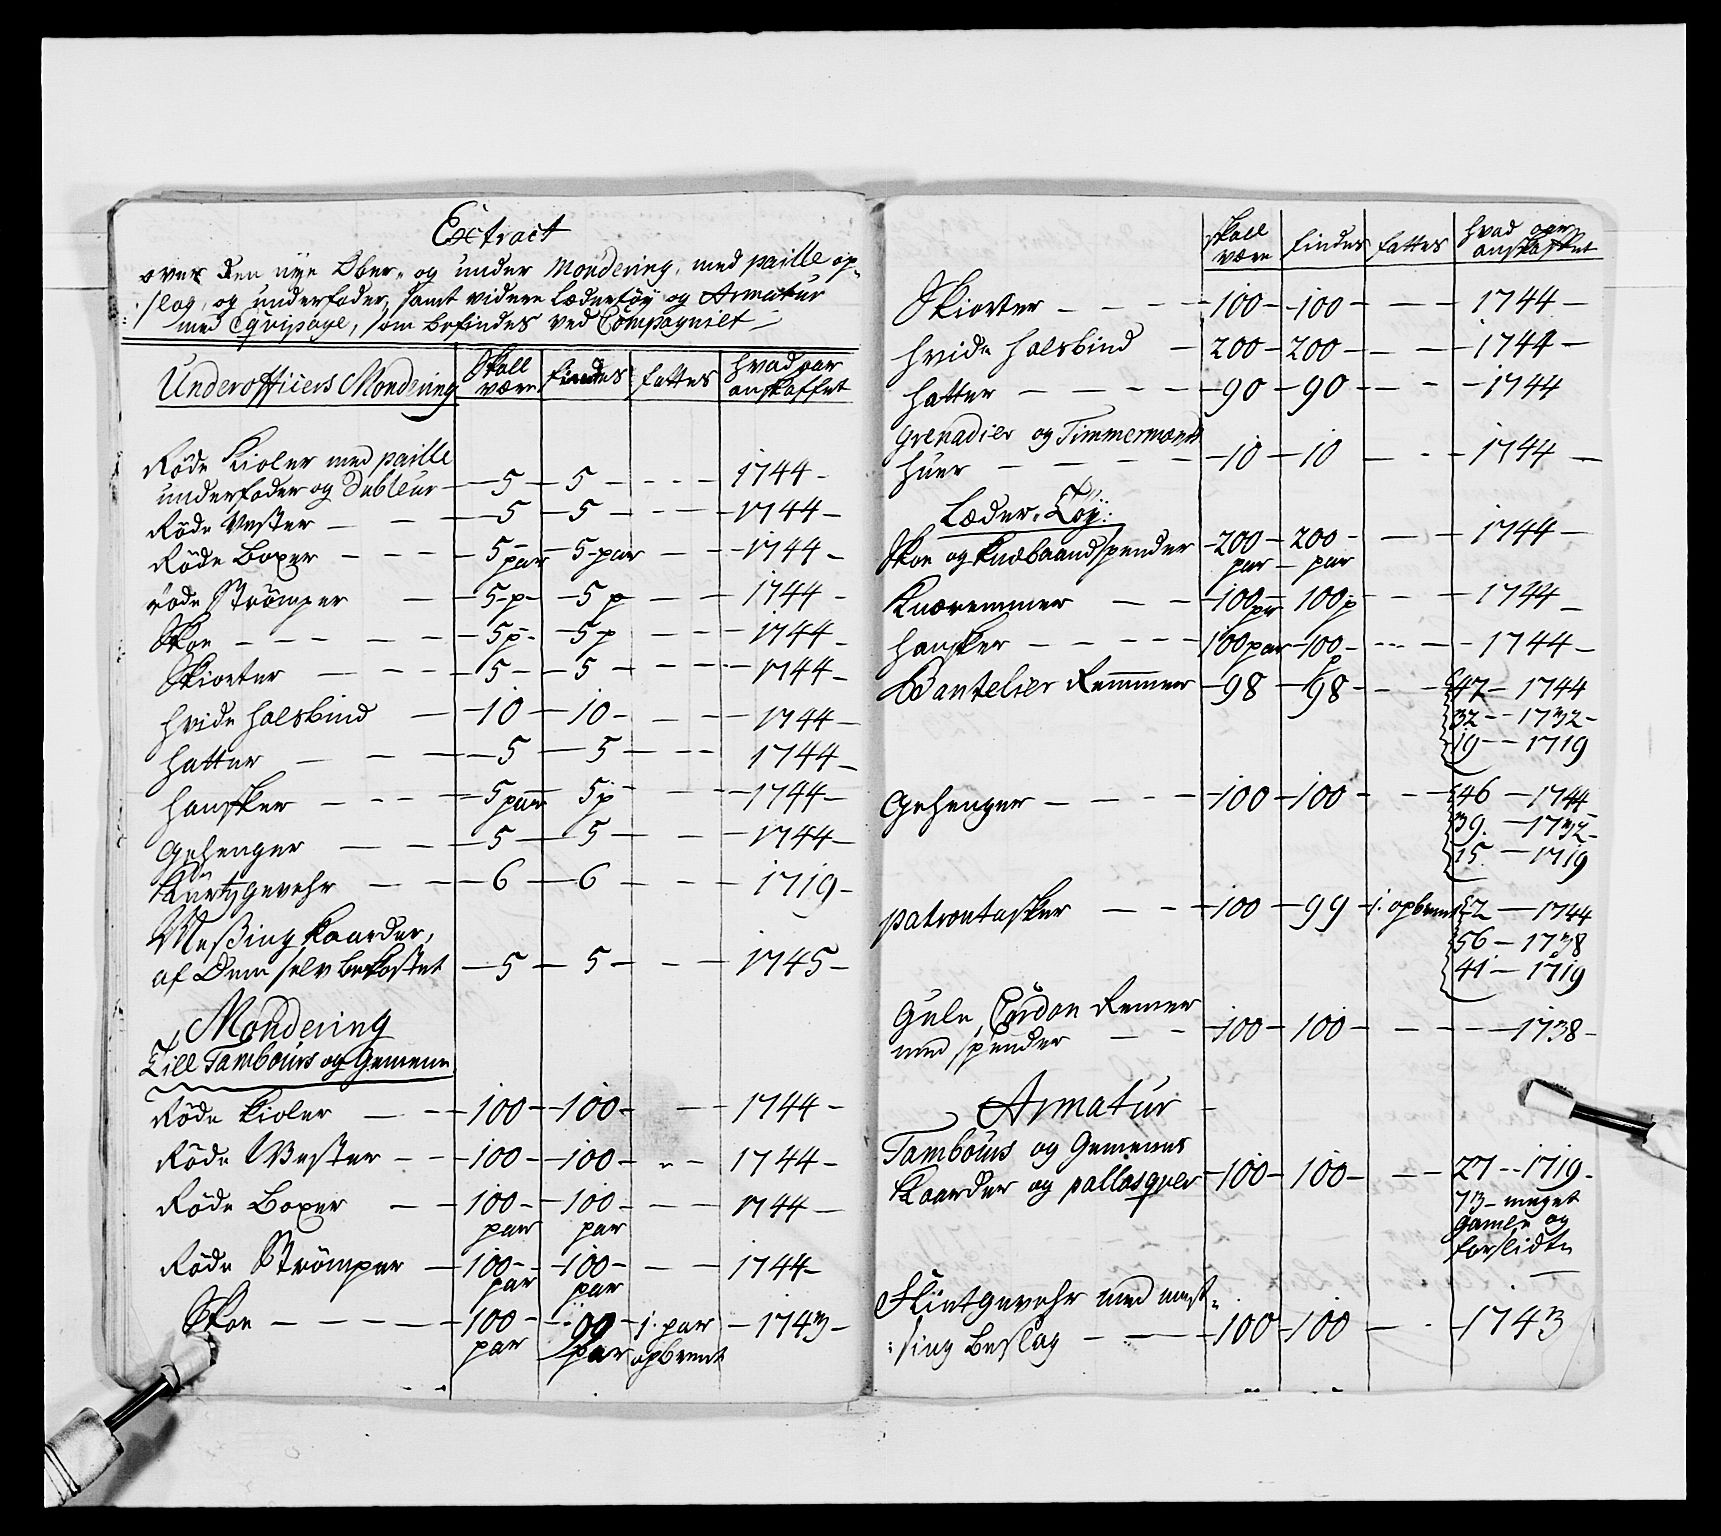 Extract
over den nye Ober- og under Mondering, med paille op-
slag, og underfoder, samt videre Lædertöy og Armatur
med Equipage, som befindes ved Compagniet
Underofficiers Mondering | Skall være | findes | fattes | hvad aar anskaffet
Røde Kioler med paille
underfoder og Dubleur — 5 — 5 — — — 1744 —
Røde Vester — — 5 — 5 — — — 1744 —
Røde Boxer — — — 5 par — 5 par — — 1744 —
røde Strömper — 5 p — 5 p — — 1744 —
Skoe — — — — — 5 p — 5 p — — 1744 —
Skiorter — — — 5 — 5 — — — 1744 —
hvide halsbind — 10 — 10 — — — 1744 —
hatter — — 5 — 5 — — — 1744 —
hansker — — — 5 par 5 p — — — 1744 —
Gehenger — — 5 — 5 — — — 1744 —
Kurtzgevehr — — 6 — 6 — — — 1719 —
Meßing Kaarder,
af Dem selv bekostet — 5 — 5 — — — 1745 —
Mondering
Till Tambours og Gemene
Røde Kioler — — 100 — 100 — — 1744 —
Røde Vester — — 100 — 100 — — — 1744 —
Røde Boxer — — 100 — 100 — — — 1744 —
par par
Røde Strömper — 100 — 100 — — — 1744 —
par par
Skoe — — — — 100 — 99 — 1. par — 1743 —
par par opbrent
Skall være | findes | fattes | hvad aar anskaffet
Skiorter — — — 100 — 100 — — — 1744 —
hvide halsbind — 200 — 200 — — — 1744 —
hatter — — — — 90 — 90 — — — 1744
Grenadier og Timmermænds
huer — — — — 10 — 10 — — — 1744 —
Læder-Töy:
Skoe og Knæbaandspender — 200 — 200 — — — 1744 —
par — par
Knæremmer — — 100 pr 100 p — — 1744 —
hansker — — — — 100 par — 100 p — — — 1744 —
Bantelier Remmer — 98 — 98 — — — 47 — 1744
32 — 1732 —
19 — 1719
Gehenger — — — — 100 — 100 — — — 46 — 1744
39. — 1732 —
15. — 1719
patrontasker — — 100 — 99 — 1. opbrent 2 — 1744
56 — 1738
41 — 1719
Gule Cordon Remer
med spender — — 100 — 100 — — — 1738 —
Armatur
Tambours og Gemenes
Kaarder og pallasquer — 100 — 100 — — — 27 — 1719 —
73 — meget
gamle og
forslidte
Flintgevehr med mes-
sing Beslag — — 100 — 100 — — 1743